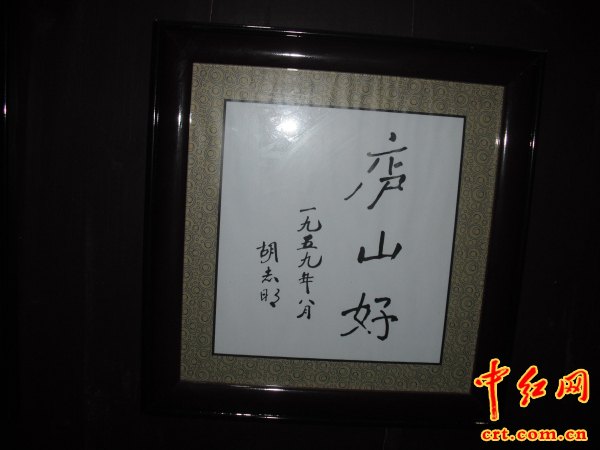 庐山好
一九五九年八月
胡志明
中红网
crt.com.cn